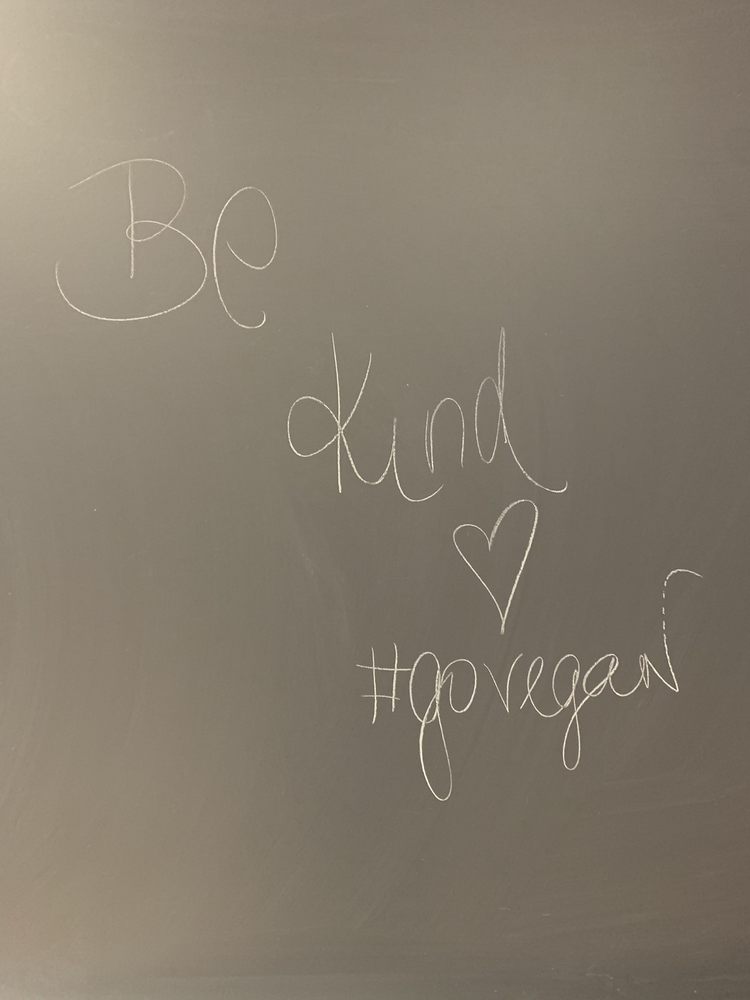 Be
Kind
#govegan